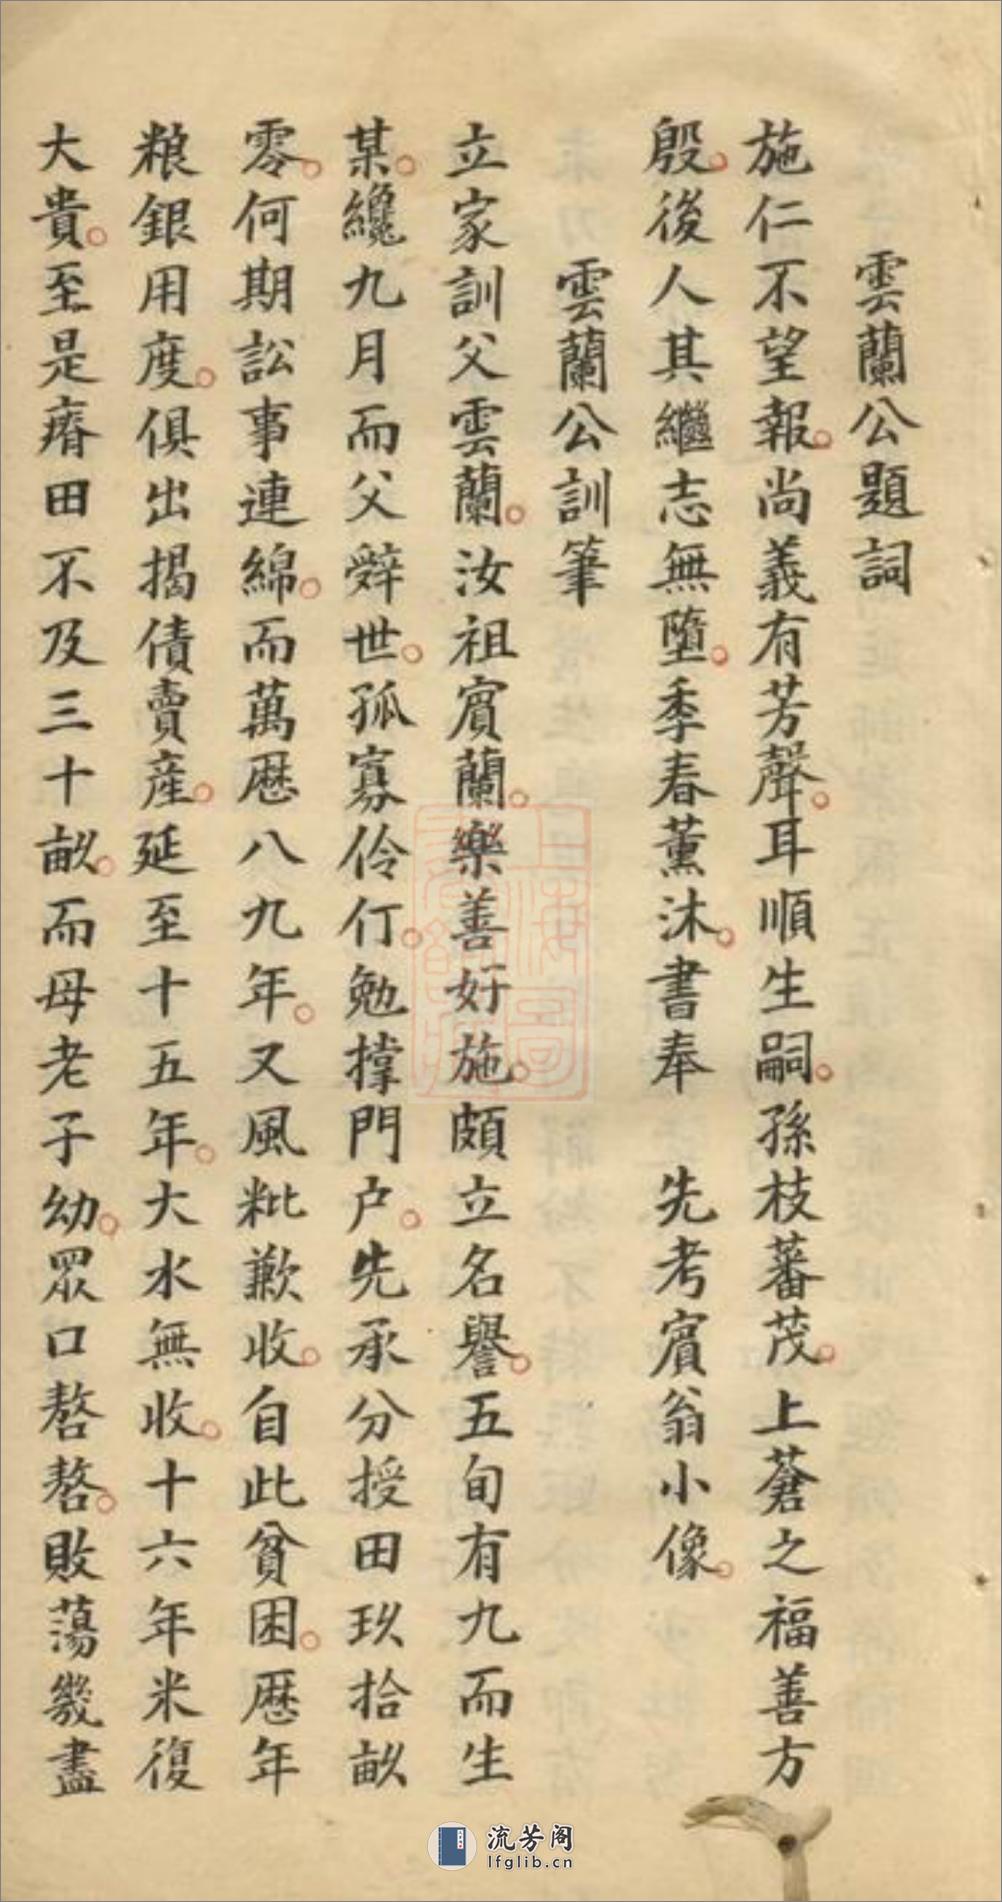 雲蘭公題詞
施仁不望報尚義有芳聲耳順生嗣孫枝蕃茂上蒼之福善方
殷後人其繼志無墮季春薰沐書奉　先考賔翁小像
雲蘭公訓筆
立家訓父雲蘭汝祖賔蘭樂善好施頗立名譽五旬有九而生
某纔九月而父辤世孤寡伶仃勉撑門户先承分授田玖拾畝
零何期訟事連綿而萬厯八九年又風粃歉收自此貧困厯年
粮銀用度俱出揭債賣産延至十五年大水無收十六年米復
大貴至是瘠田不及三十畝而母老子幼眾口嗸嗸敗蕩幾盡
流芳阁
lfglib.cn